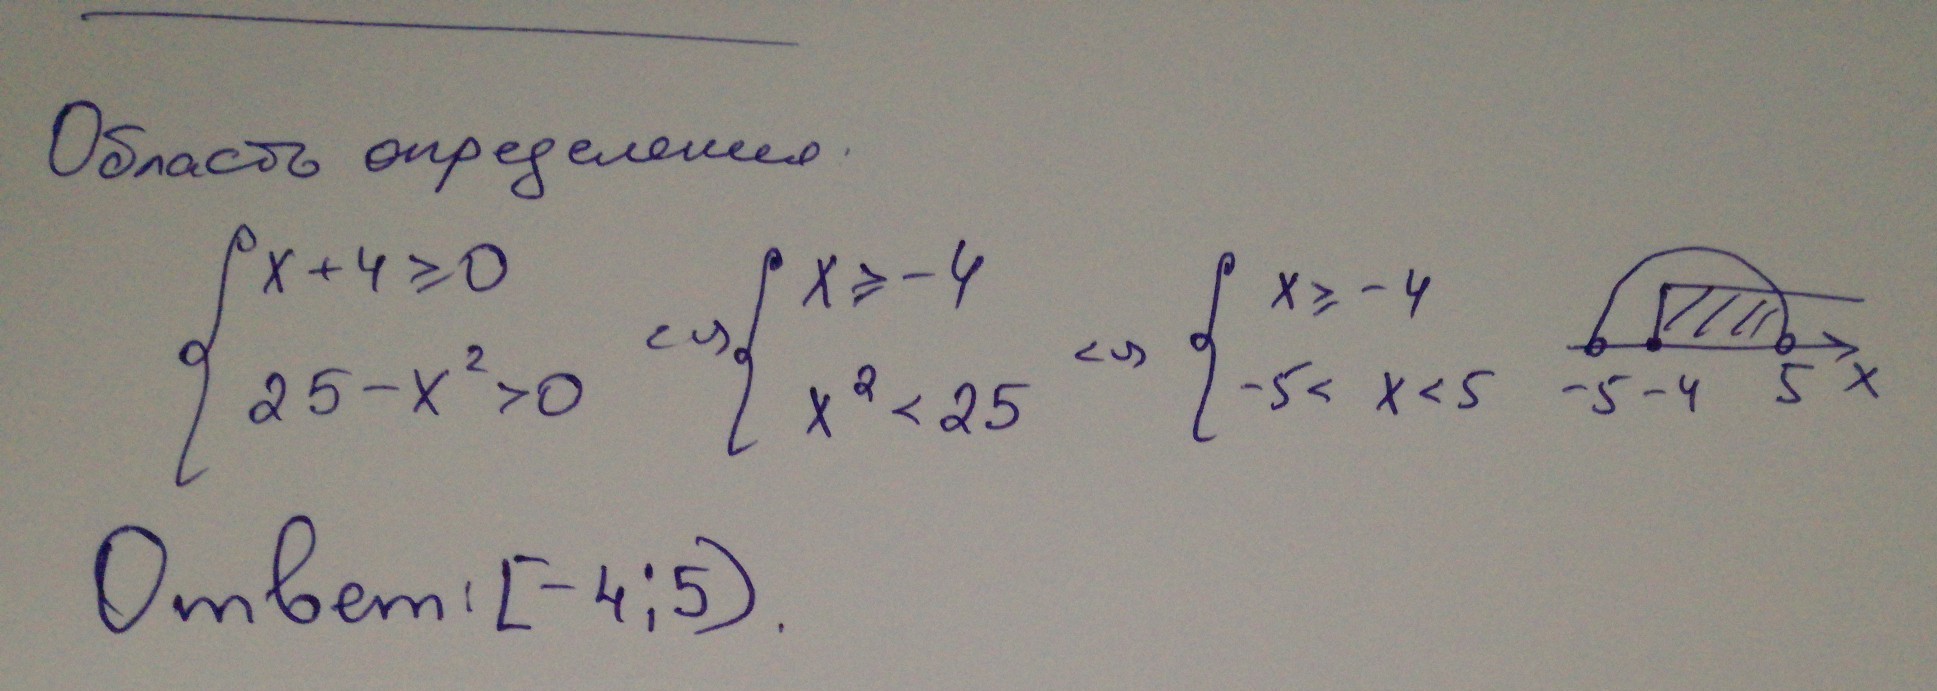 Область определения.
{ x + 4 ⩾ 0 <=> { x ⩾ -4 <=> { x ⩾ -4
25 - x² > 0 x² < 25 -5 < x < 5 -5 -4 5 x
Ответ: [-4; 5).